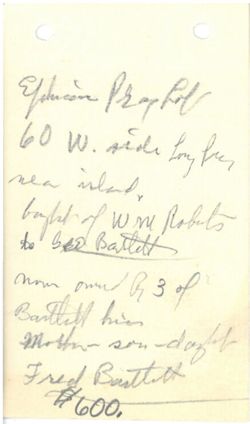 Ephraim
60 W. side Long
near island,
bought of Wm Roberts
to Geo Bartlett
now owned by 3 of
Bartlett
Mother - son - daught
Fred Bartlett
$600.